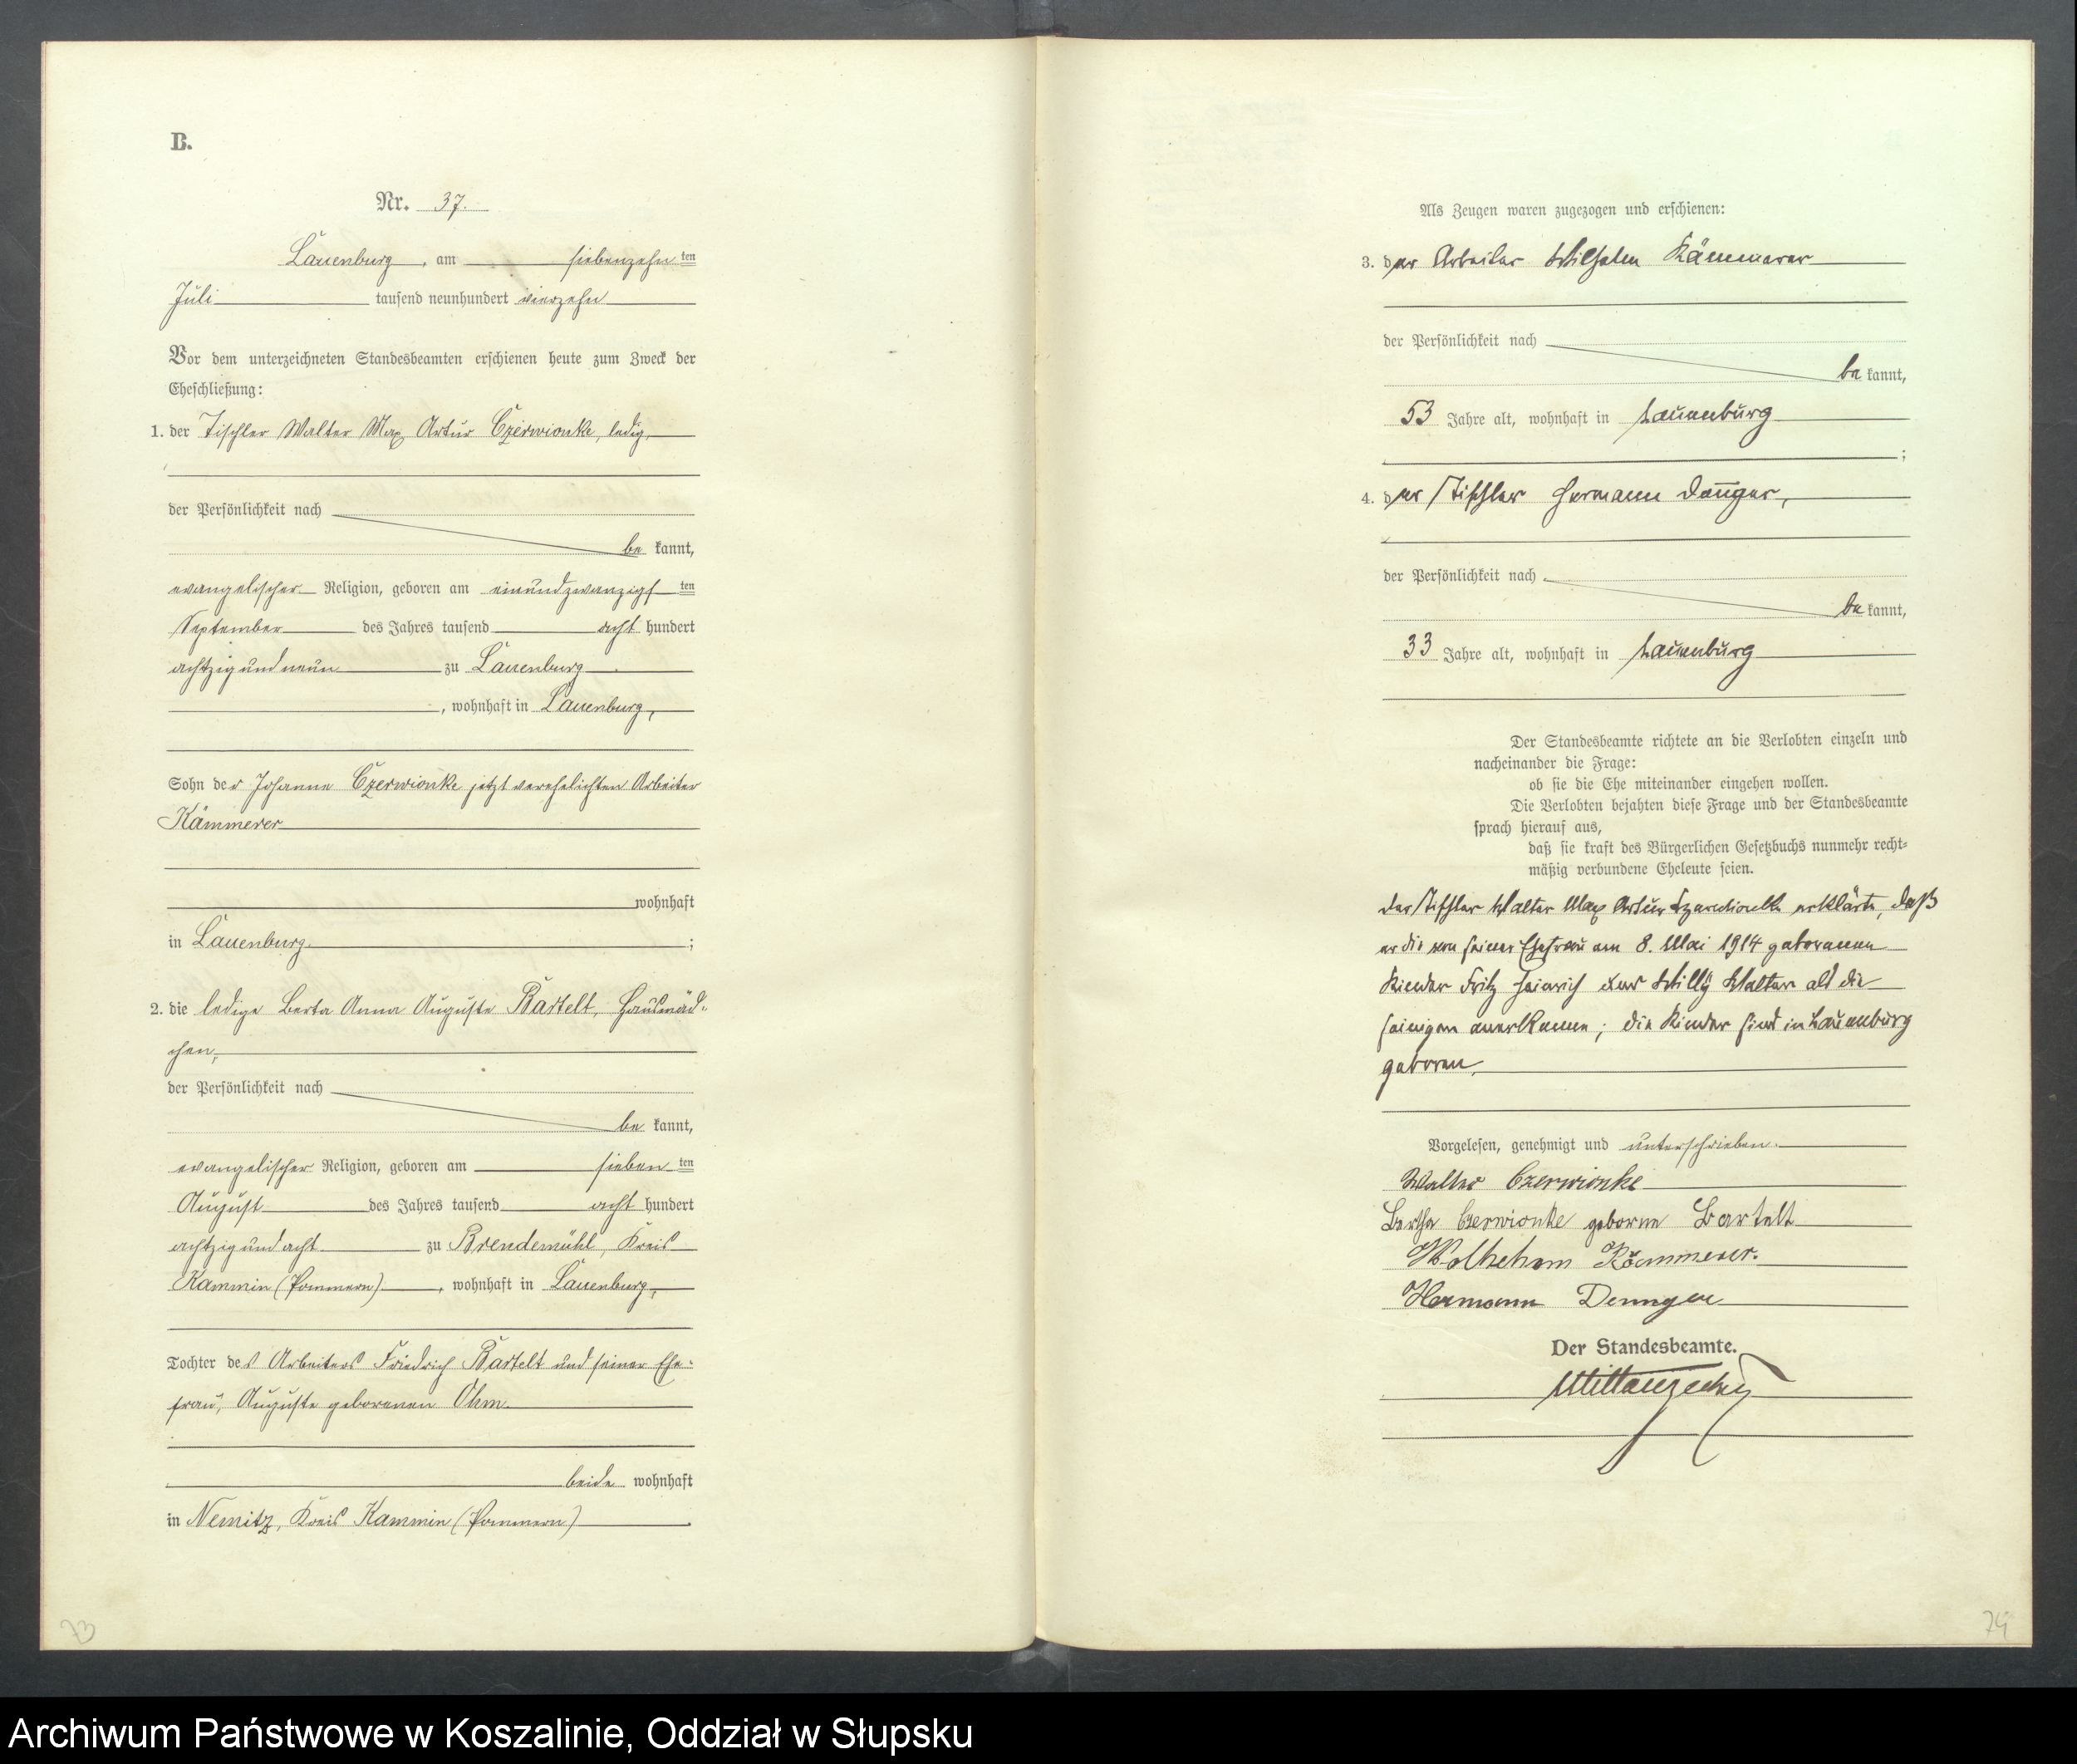 B.
Nr. 37.
Lauenburg, am siebenzehn ten
Juli tausend neunhundert vierzehn
Vor dem unterzeichneten Standesbeamten erschienen heute zum Zweck der
Eheschließung:
1. der Tischler Walter Max Artur Czerwionke, ledig,
der Persönlichkeit nach
be kannt,
evangelischer Religion, geboren am einundzwanzigs ten
September des Jahres tausend acht hundert
achtzig und neun zu Lauenburg
, wohnhaft in Lauenburg,
Sohn der Johanne Czerwionke jetzt verehelichten Arbeiter
Kämmerer
wohnhaft
in Lauenburg ;
2. die ledige Berta Anna Auguste Bartelt, Hausmäd-
chen,
der Persönlichkeit nach
be kannt,
evangelischer Religion, geboren am sieben ten
August des Jahres tausend acht hundert
achtzig und acht zu Brendemühl, Kreis
Kammin (Pommern), wohnhaft in Lauenburg,
Tochter des Arbeiters Friedrich Bartelt und seiner Ehe-
frau, Auguste geborenen Ohm
beide wohnhaft
in Nemitz, Kreis Kammin (Pommern).
73
Als Zeugen waren zugezogen und erschienen:
3. der Arbeiter Wilhelm Kämmerer
der Persönlichkeit nach
be kannt,
53 Jahre alt, wohnhaft in Lauenburg
;
4. der Tischler Hermann Denger,
der Persönlichkeit nach
be kannt,
33 Jahre alt, wohnhaft in Lauenburg
Der Standesbeamte richtete an die Verlobten einzeln und
nacheinander die Frage:
ob sie die Ehe miteinander eingehen wollen.
Die Verlobten bejahten diese Frage und der Standesbeamte
sprach hierauf aus,
daß sie kraft des Bürgerlichen Gesetzbuchs nunmehr recht-
mäßig verbundene Eheleute seien.
Der Tischler Walter Max Artur Czerwionke erklärte, daß
er die von seiner Ehefrau am 8. Mai 1914 geborenen
Kinder Fritz Heinrich und Willy Walter als die
seinigen anerkenne; die Kinder sind in Lauenburg
geboren.
Vorgelesen, genehmigt und unterschrieben.
Walter Czerwionke
Bertha Czerwionke geborne Bartelt
Wilhelm Kämmerer.
Hermann
Der Standesbeamte.
74
Archiwum Państwowe w Koszalinie, Oddział w Słupsku